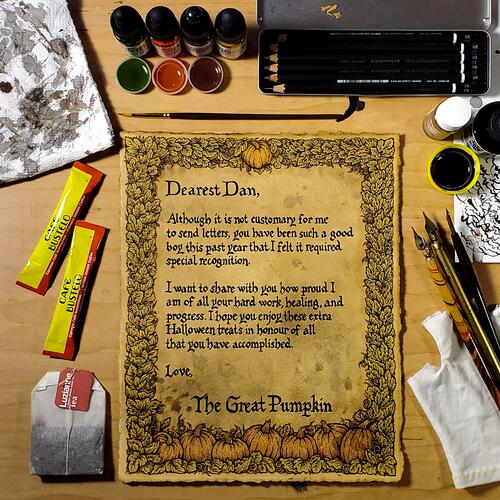 Dearest Dan,
Although it is not customary for me
to send letters, you have been such a good
boy this past year that I felt it required
special recognition.
I want to share with you how proud I
am of all your hard work, healing, and
progress. I hope you enjoy these extra
Halloween treats in honour of all
that you have accomplished.
Love,
The Great Pumpkin
CAFÉ
BUSTELO
CAFÉ
BUSTELO
Luzianne
tea